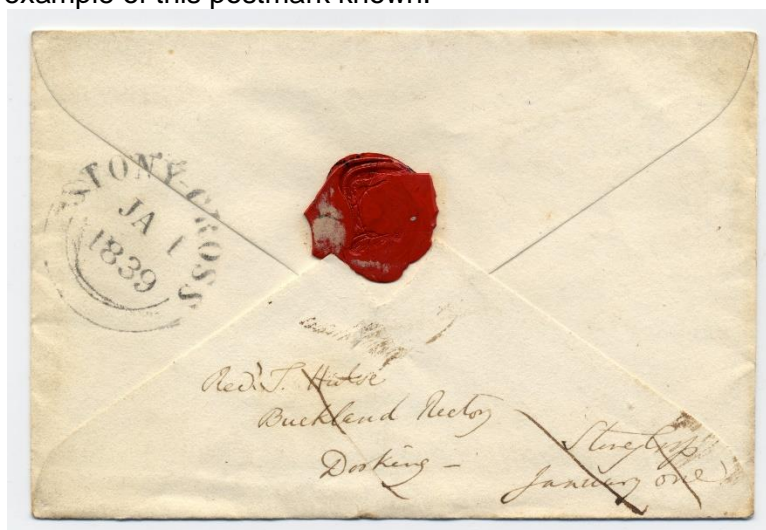 example of this postmark known.
STONY-CROSS
JA 1
1839
Revd. T. Hulse
Buckland Rectory
Dorking -
January one